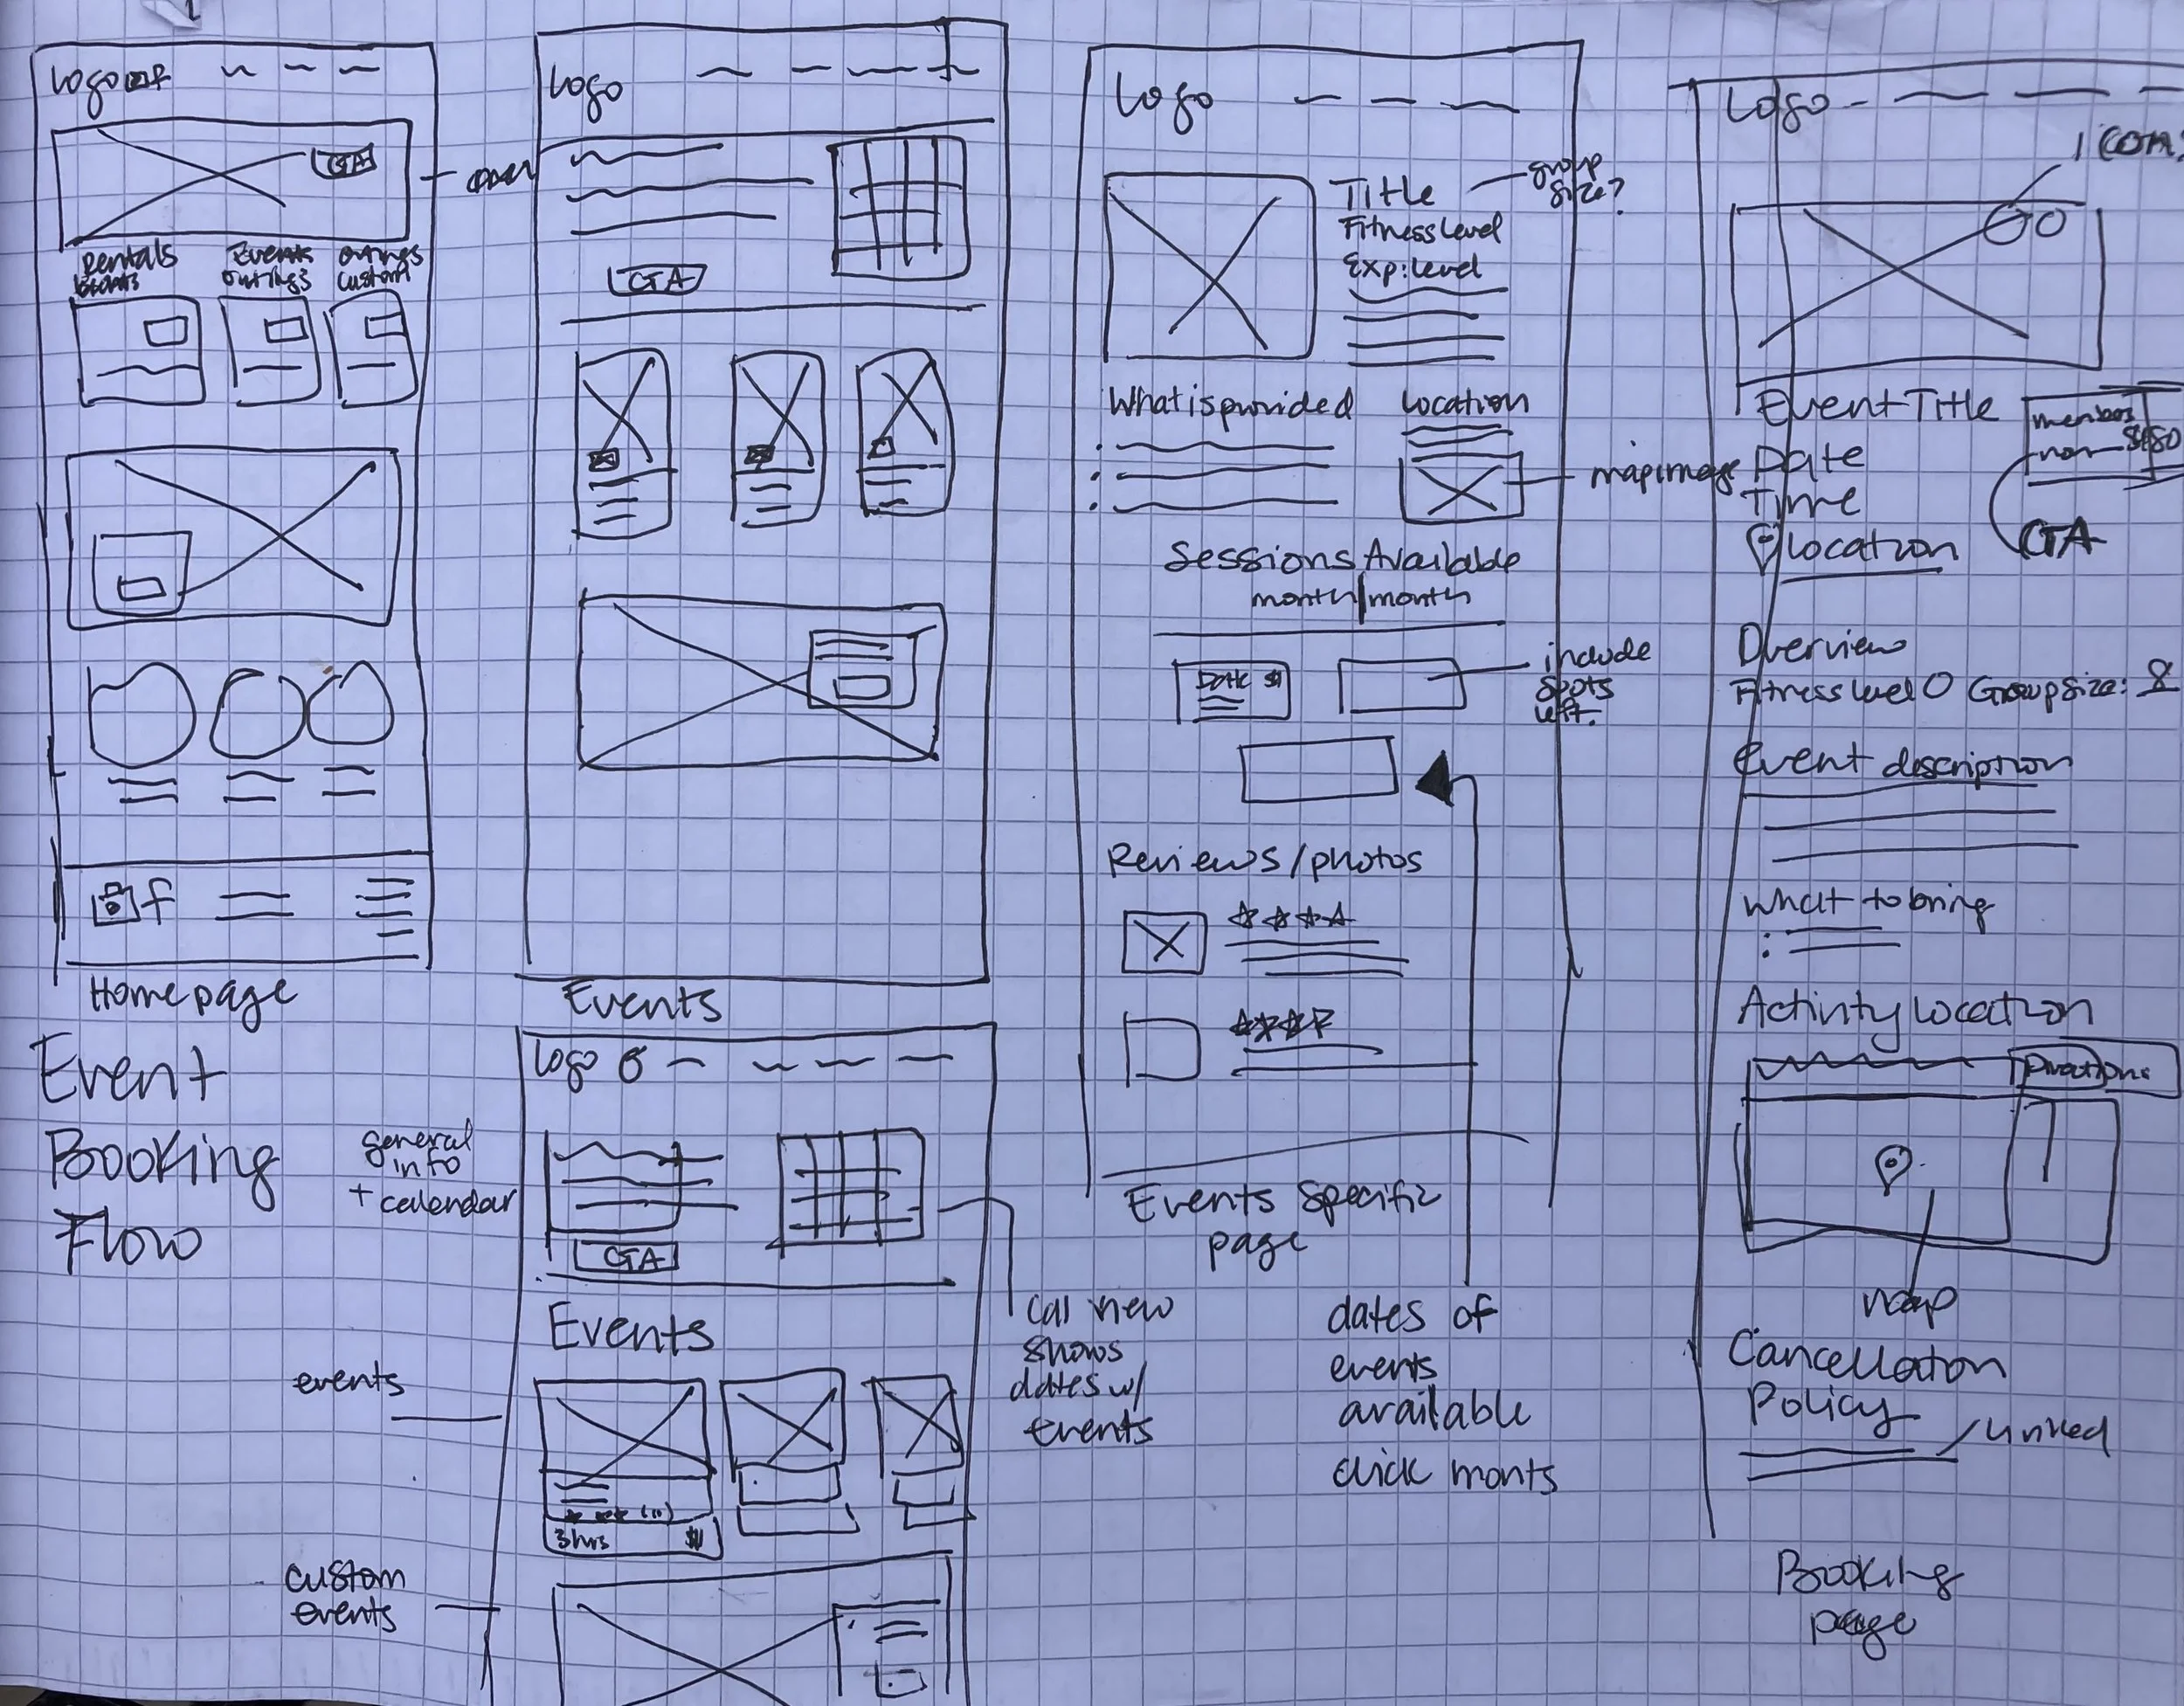 Logo
CTA
Rentals
Events
outings
outings
custom
Homepage
Event
Booking
Flow
Logo
CTA
Events
Logo
general
info
+ calendar
CTA
Events
events
3hrs $
custom
events
Cal view
shows
dates w/
events
Logo
Title
group
size?
Fitness level
Exp: level
What is provided
Location
map image
Sessions Available
month/month
Date $
include
spots
left.
Reviews/photos
Events Specific
page
dates of
events
available
click monts
Logo
Event Title
Date
Time
Location
members
non $180
CTA
Overview
Fitness level
Group size: 8
Event description
What to bring
Activity Location
Directions
map
Cancellation
Policy
linked
Booking
page